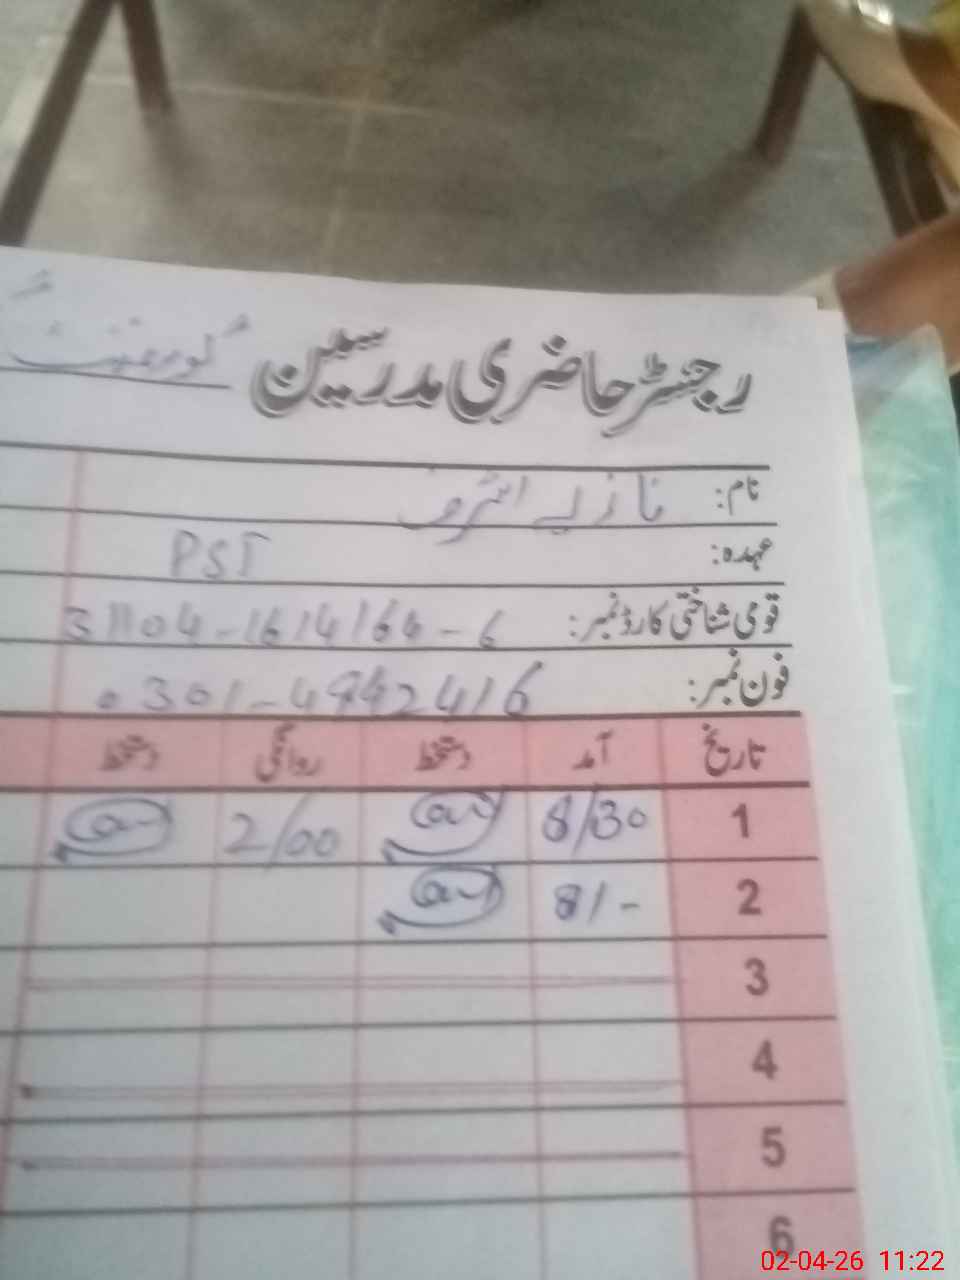 رجسٹر حاضری مدرسین گورنمنٹ
نام: نازیہ اشرف
عہدہ: PST
قومی شناختی کارڈ نمبر: 31104-1614164-6
فون نمبر: 0301-4942416
تاریخ آمد دستخط روانگی دستخط
1 8/30 2/00
2 8/-
3
4
5
6
02-04-26 11:22